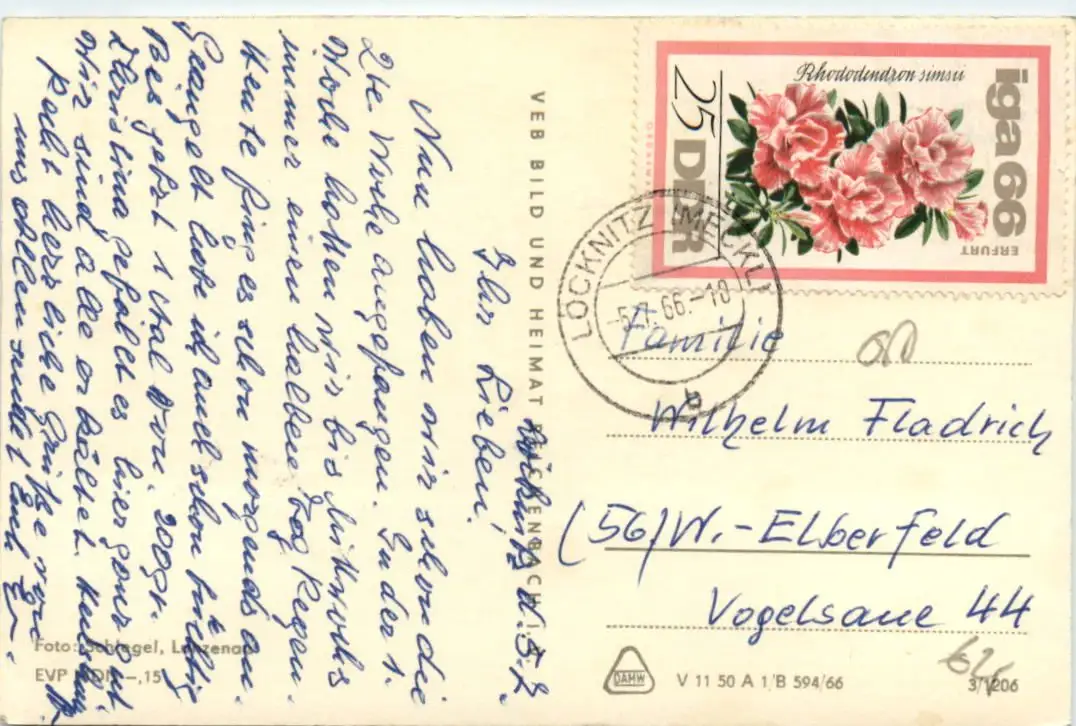 Löcknitz d. 5.7.
Ihr Lieben!
Nun haben wir schon die
2te Woche angefangen. In der 1.
Woche hatten wir bis Mittwochs
immer einen halben Tag Regen.
Heute fing es schon morgends an.
Geangelt habe ich auch schon tüchtig
Bis jetzt 1 Aal von 200gr.
Christina gefällt es hier ganz gut.
Wir sind alle erkältet.
Recht herzliche Grüße von
uns allen sendet Euch
VEB BILD UND HEIMAT REICHENBACH I. V.
Foto: Schlegel, Lanzenau
EVP MDN -,15
Rhododendron simsii
iga 66
ERFURT
25 DDR
LÖCKNITZ (MECKL)
-5.7.66.-18
a
Familie
Wilhelm Fladrich
(56) W.-Elberfeld
Vogelsaue 44
DAMW
V 11 50 A 1/B 594/66
3/1206